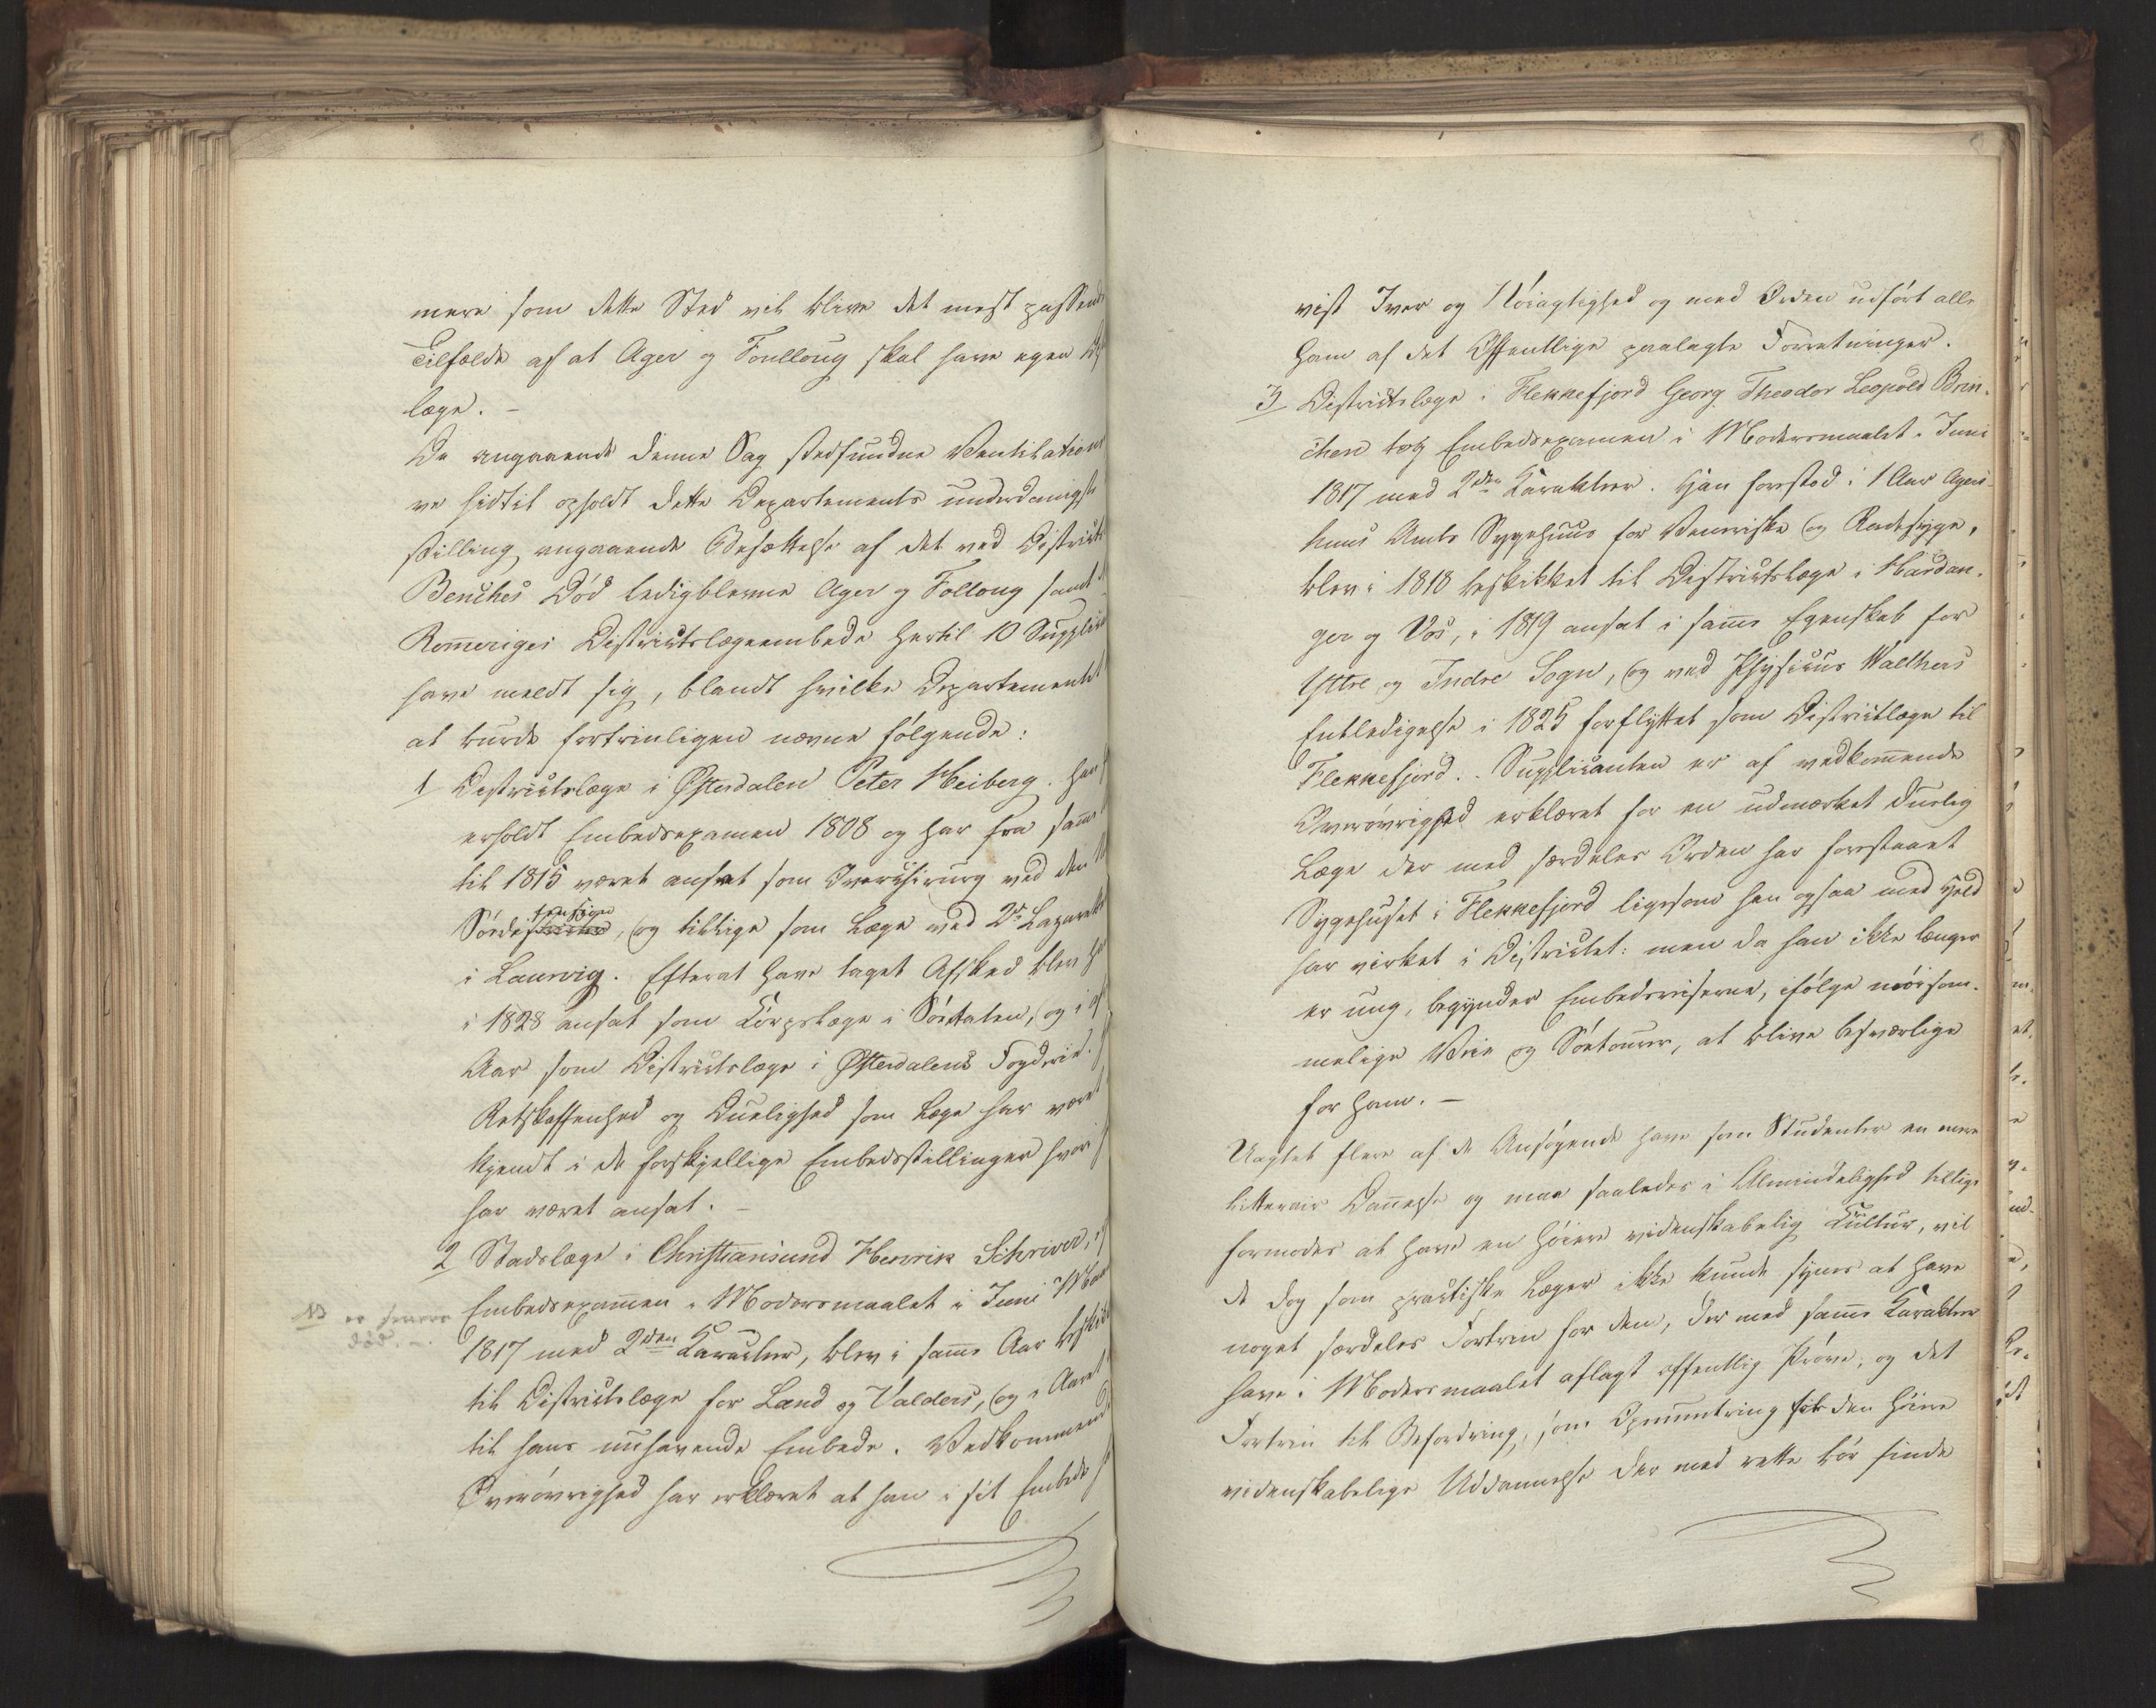 mere som dette Sted vil blive det mest passende
Tilfælde af at Ager og Foulloug skal have egen
læge. –
De angaaende denne Sag stedfundne Ventilationer
ve hidtil opholdt dette Departements underdanigste
stilling angaaende Besættelse af det ved Districts
Benches Død ledigblevne Ager og Folloug samt
Romeriges Districtslægeembede hertil 10 Supplican
have meldt sig, blandt hvilke Departementet
at burde fortrinligen nævne følgende:
1 Districtslæge i Østerdalen Peter Heiberg. Han
erholdt Embedsexamen 1808 og har fra samme
til 1815 været ansat som Overchirurg ved den
Sördef, og tillige som Læge ved 2de Lazarether
i Laurvig. Efterat have taget Afsked blev han
i 1828 ansat som Corpslæge i Sördalen, og i
Aar som Districtslæge i Østerdalens Fogderie.
Retskaffenhed og Duelighed som Læge har været
kjendt i de forskjellige Embedsstillinger hvori
har været ansat. –
2 Stadslæge i Christiansund Henrik Schriver,
NB er senere
død. –
Embedsexamen i Modersmaalet i Juni Maaned
1817 med 2den Karacter, blev i samme Aar beskikket
til Districtslæge for Land og Valders, og i Aaret
til hans nuhavende Embede. Vedkommende
Overøvrighed har erklæret at han i sit Embede
vist Iver og Nöiagtighed og med Orden udfört alle
ham af det Offentlige paalagte Forretninger.
3 Districtslæge i Flekkefjord Georg Theodor Leopold Brin-
chen tog Embedsexamen i Modersmaalet i Juni
1817 med 2den Karakteer. Han forestod i 1 Aar Agers-
huus Amts Sygehuus for Veneriske og Radesyge,
blev i 1818 beskikket til Districtslæge i Hardan-
ger og Vos, i 1819 ansat i samme Egenskab for
Yttre og Indre Sogn, og ved Physicus Walthers
Entledigelse i 1825 forflyttet som Districtlæge til
Flekkefjord. - Supplicanten er af vedkommende
Overøvrighed erklæret for en udmærket duelig
Læge der med særdeles Orden har forestaaet
Sygehuset i Flekkefjord ligesom han ogsaa med Held
har virket i Districtet: men da han ikke længer
er ung, begynder Embedsreiserne, ifölge möisom-
melige Veie og Sötourer, at blive besværlige
for ham. –
Uagtet flere af de Ansøgende have som Studenter en mere
litterair Dannelse og maa saaledes i Almindelighed tillige
formodes at have en höiere videnskabelig Cultur, vil
de dog som practiske Læger ikke kunde synes at have
noget særdeles Fortrin for den, der med samme Karakteer
have i Modersmaalet aflagt offentlig Pröve, og det
Fortrin til Befordring, som Opmuntring for den höiere
videnskabelige Uddannelse der med rette bör finde